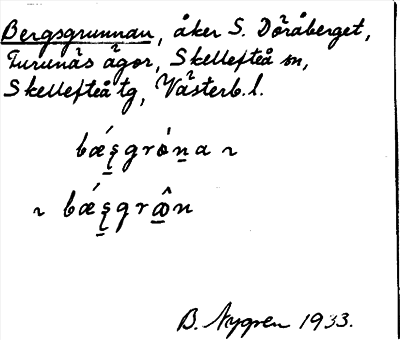 Bergsgrunnan, åker S. Döråberget,
Furunäs ägor, Skellefteå sn,
Skellefteå tg, Västerb. l.
bǽs̱gróṉa ~
~ bǽs̱grω̱̂n
B. Nygren 1933.